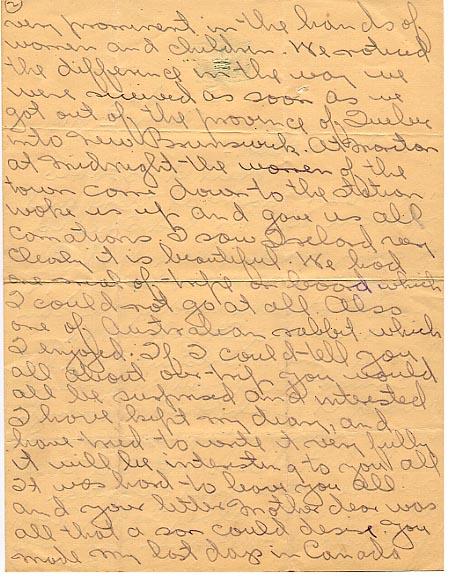 2
very prominent in the hands of
women and children. We noticed
the difference in the way we
were received as soon as we
got out of the province of Quebec
into New Brunswick. At Moncton
at midnight the women of the
town came down to the station
woke us up and gave us all
carnations I saw Ireland very
clearly it is beautiful. We had
one meal of tripe on board which
I could not go at all Also
one of Australian rabbit which
I enjoyed. If I could tell you
all about our trip you would
all be surprised and interested
I have kept my diary, and
have tried to write it very fully
it will be interesting to you all
It was hard to leave you all
and your letter Mother dear was
all that a son could desire. You
made my last days in Canada